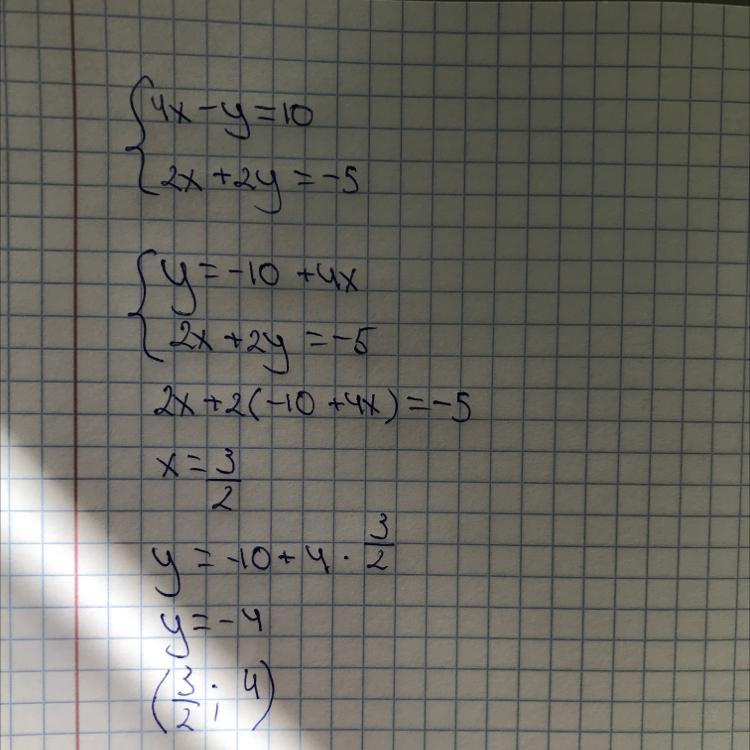 {4x - y = 10
{2x + 2y = -5
{y = -10 + 4x
{2x + 2y = -5
2x + 2(-10 + 4x) = -5
x = 3/2
y = -10 + 4 · 3/2
y = -4
(3/2; 4)